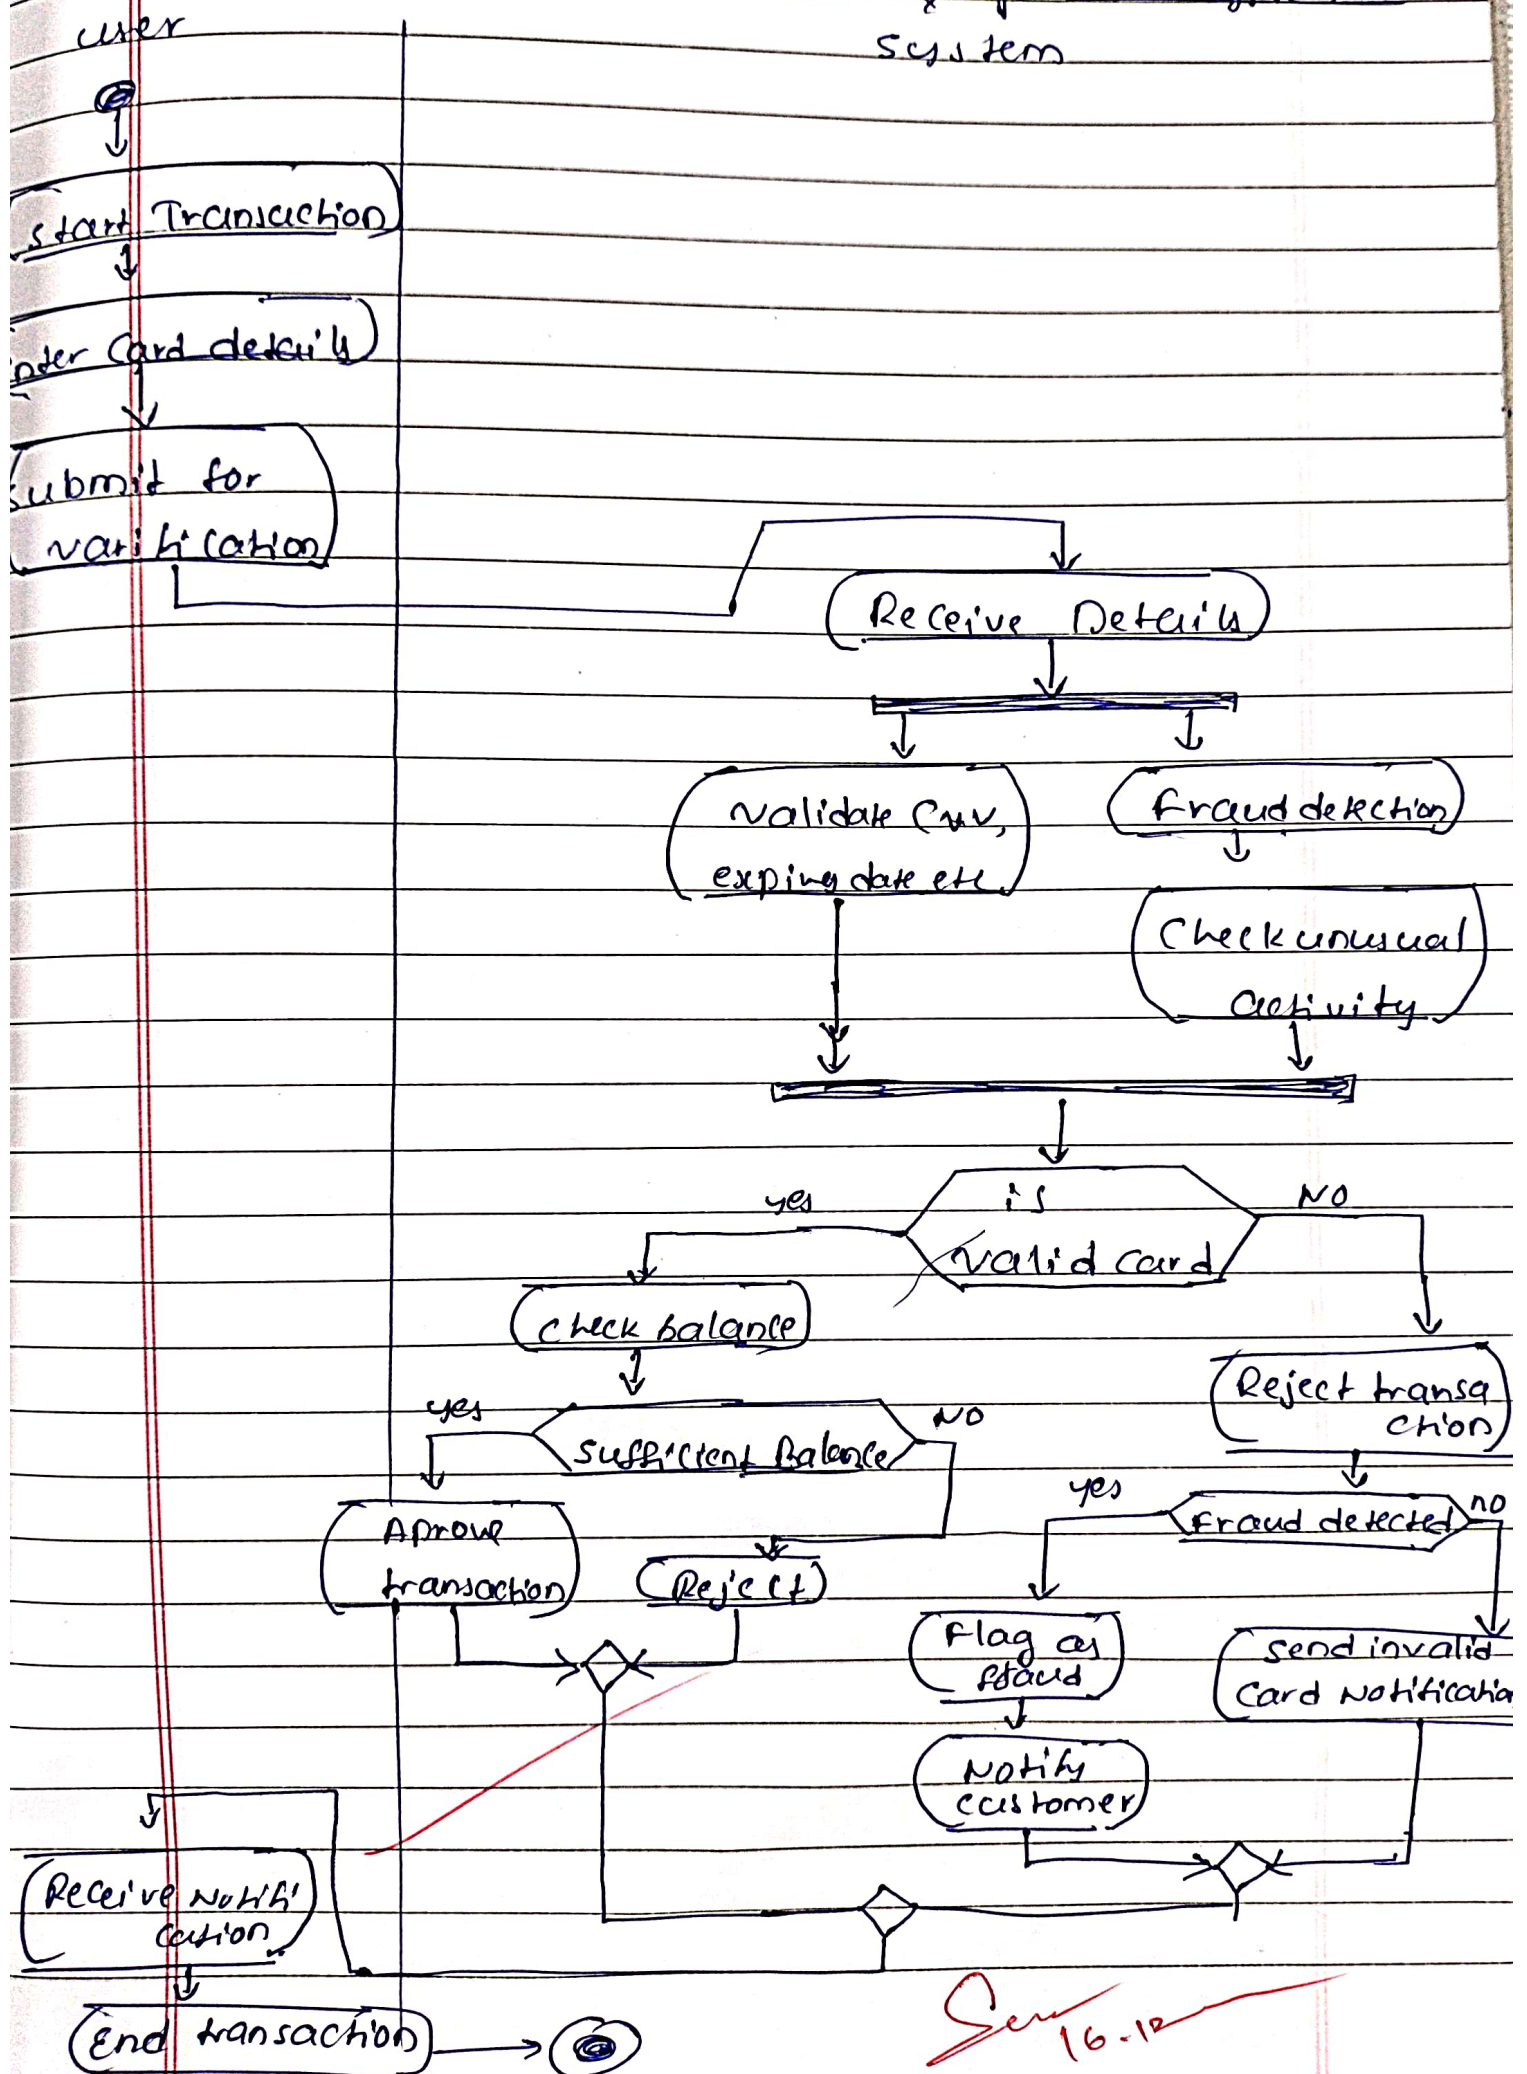 user
system
start Transaction
nter Card details
submit for
varification
Receive Details
validate CVV,
expiring date etc
fraud detection
Check unusual
activity
is
valid card
yes
NO
check balance
Reject transa
ction
yes
sufficient Balance
NO
yes
fraud detected
no
Aprove
transaction
Reject
Flag as
fraud
send invalid
Card Notificatio
Notify
customer
Receive Notifi
cation
End transaction
16-12